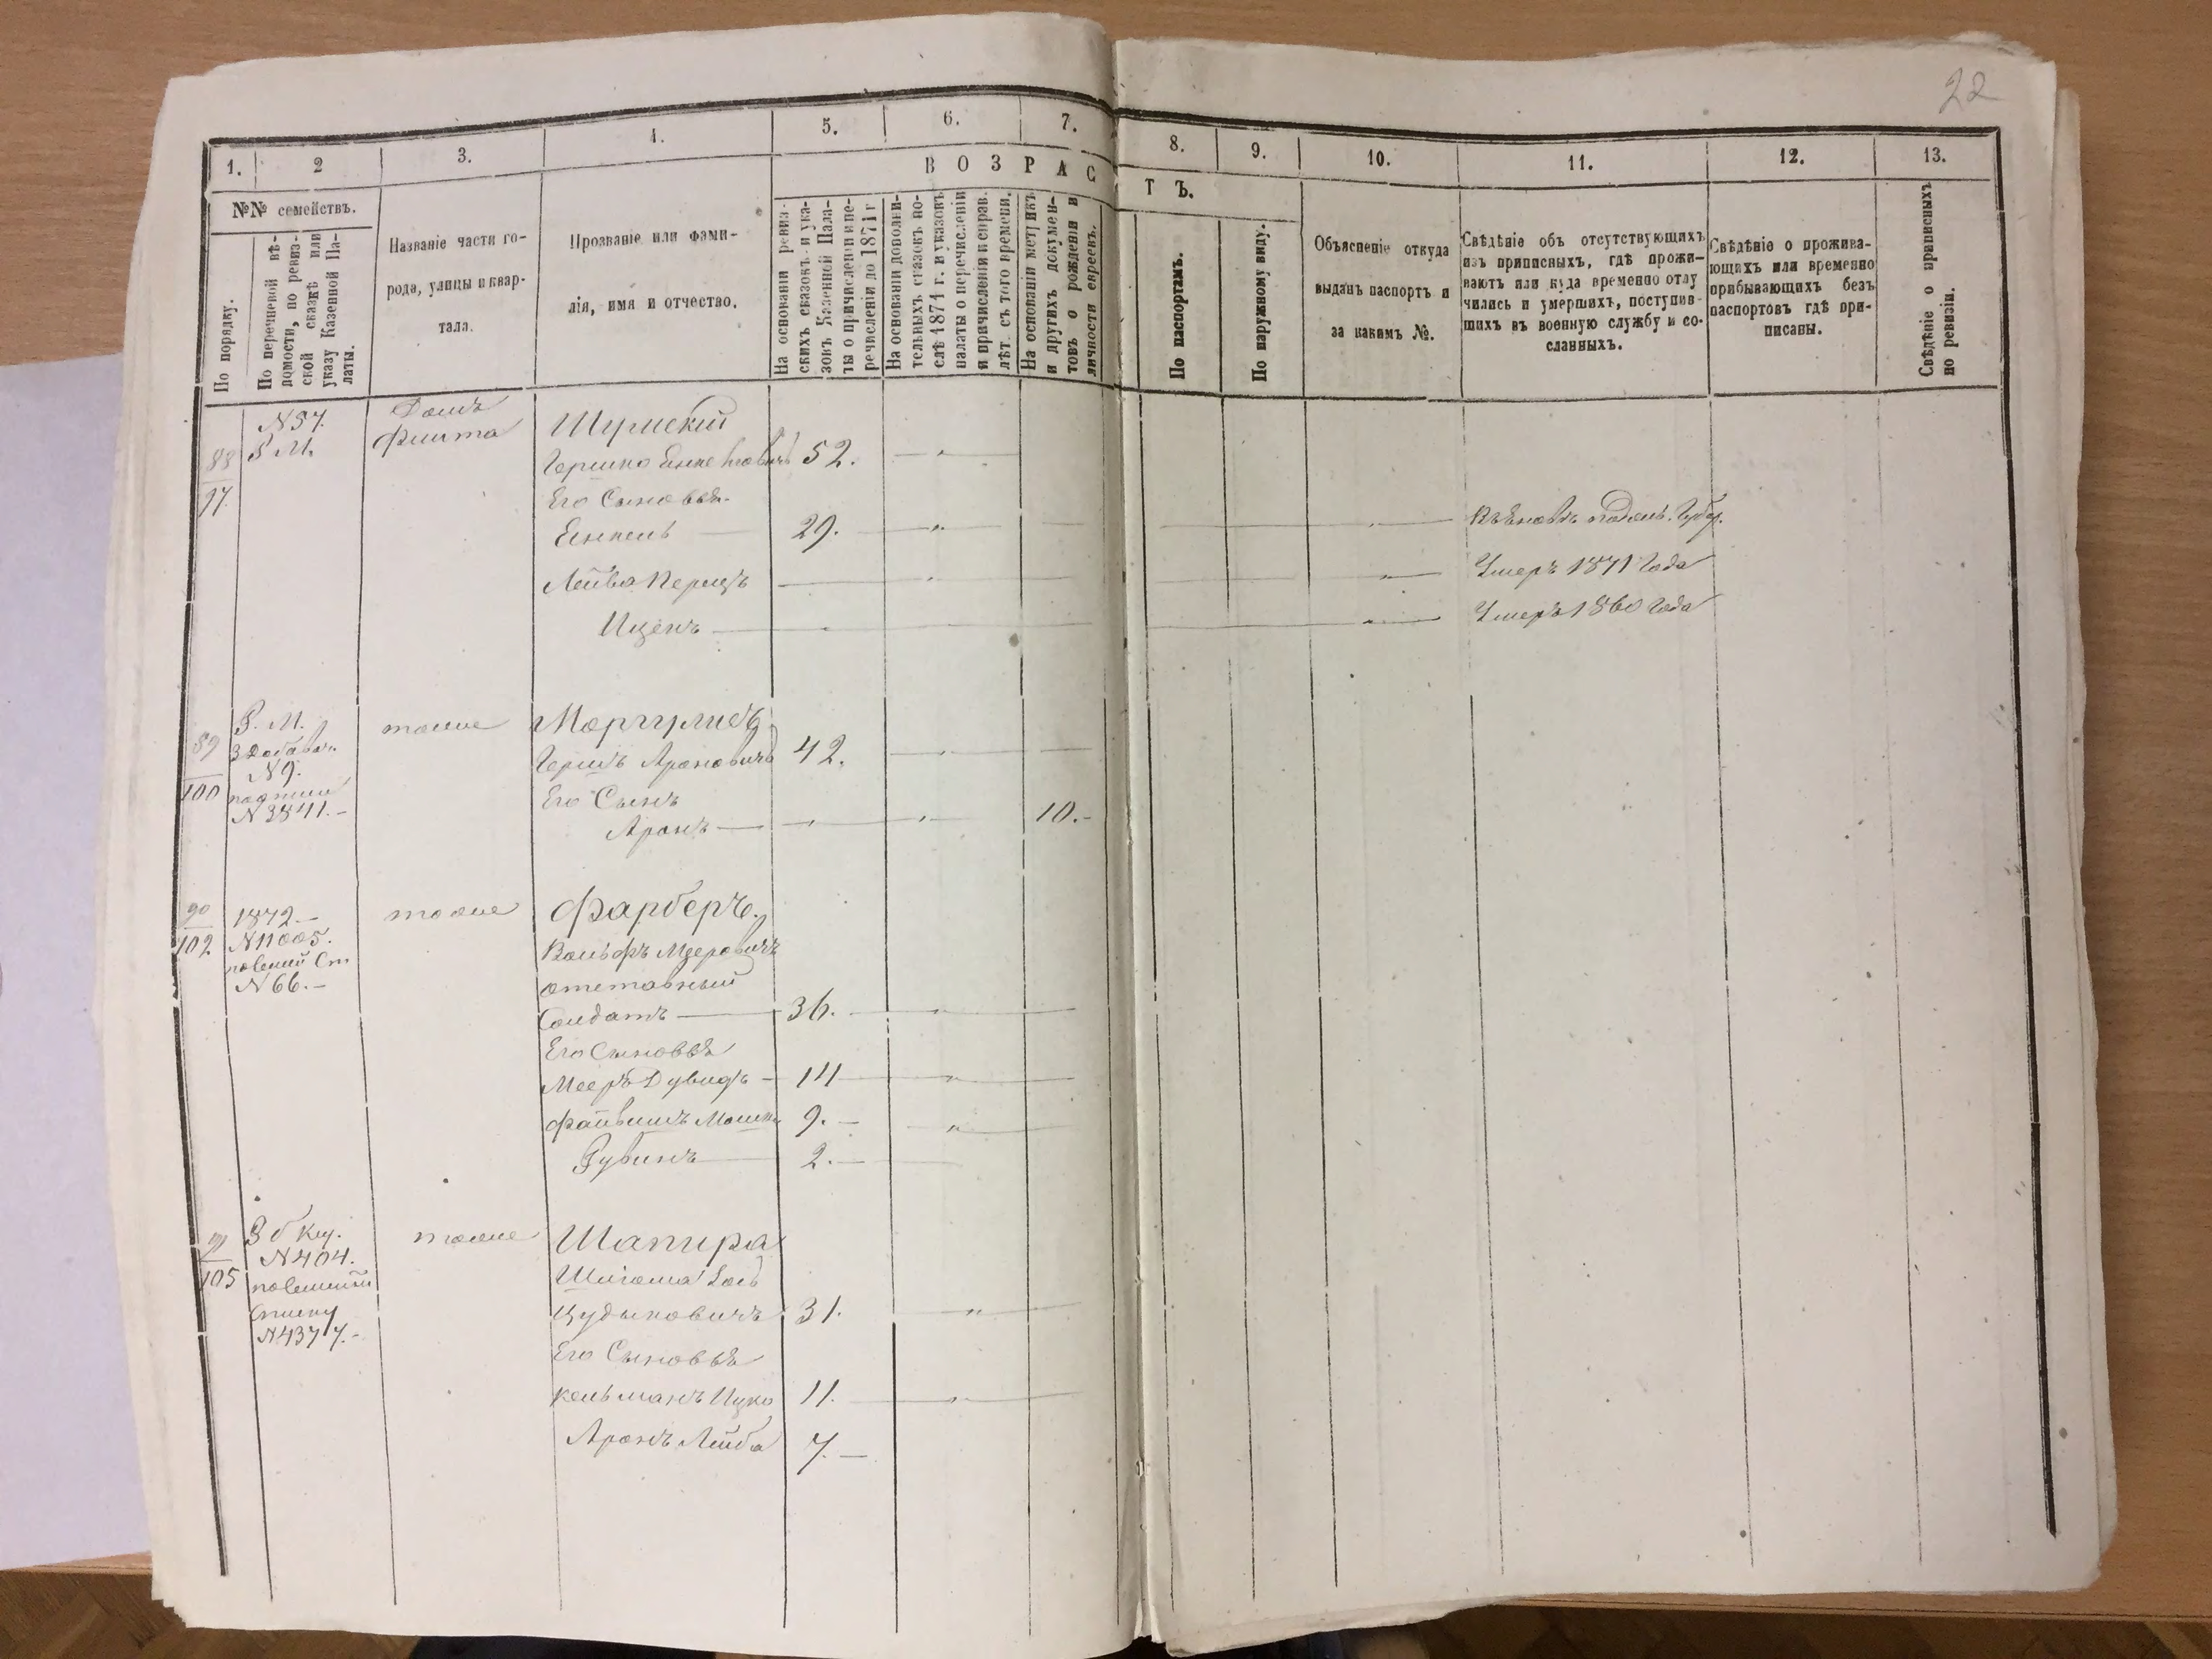 22
1.
2
3.
4.
5.
6.
7.
8.
9.
10.
11.
12.
13.
№№ семействъ.
По порядку.
По перечневой вѣ-
домости, по ревиз-
ской сказкѣ или
указу Казенной Па-
латы.
Названіе части го-
рода, улицы и квар-
тала.
Прозваніе или фами-
лія, имя и отчество.
ВОЗРАС
ТЪ.
На основаніи ревиз-
скихъ сказокъ и ука-
зовъ Казенной Пала-
ты о причисленіи и пе-
речисленіи до 1871 г
На основаніи дополни-
тельныхъ сказокъ по-
слѣ 1871 г. и указовъ
палаты о перечисленіи
и причисленіи и справ.
лѣт. съ того времени.
На основаніи метрикъ
и другихъ докумен-
товъ о рожденіи и
личности евреевъ.
По паспортамъ.
По наружному виду.
Объясненіе откуда
выданъ паспортъ и
за какимъ №.
Свѣдѣніе объ отсутствующихъ
изъ приписныхъ, гдѣ прожи-
ваютъ или куда временно отлу
чились и умершихъ, поступив-
шихъ въ военную службу и со-
сланныхъ.
Свѣдѣніе о прожива-
ющихъ или временно
прибывающихъ безъ
паспортовъ гдѣ при-
писаны.
Свѣдѣніе о приписныхъ
по ревизіи.
88
97.
N 57.
Р М.
Домъ
Финта
Шумскій
Гершко 52.
Его Сыновья
Енкель 29. Губер.
Лейба Перецъ Умеръ 1871 Года
Ицекъ Умеръ 1860 Года
89
100
Р. М.
N 9.
N 3841.-
тоже
Моргулисъ
Гершъ Ароновичъ 42.
Его Сынъ
Аронъ 10.-
90
102
1872.-
N 11005.
N 66.-
тоже
Фарберъ.
Вольфъ Мееровичъ
отставный
Солдатъ 36.
Его Сыновья
Мееръ Дувидъ 14
Файвишъ Мошко 9.-
Рувинъ 2.-
91
105
N 404.
Списку
N 4377.-
тоже
Шапира
Шлиома
Цудыковичъ 31.
Его Сыновья
Кельманъ Ицко 11.
Аронъ Лейба 7.-